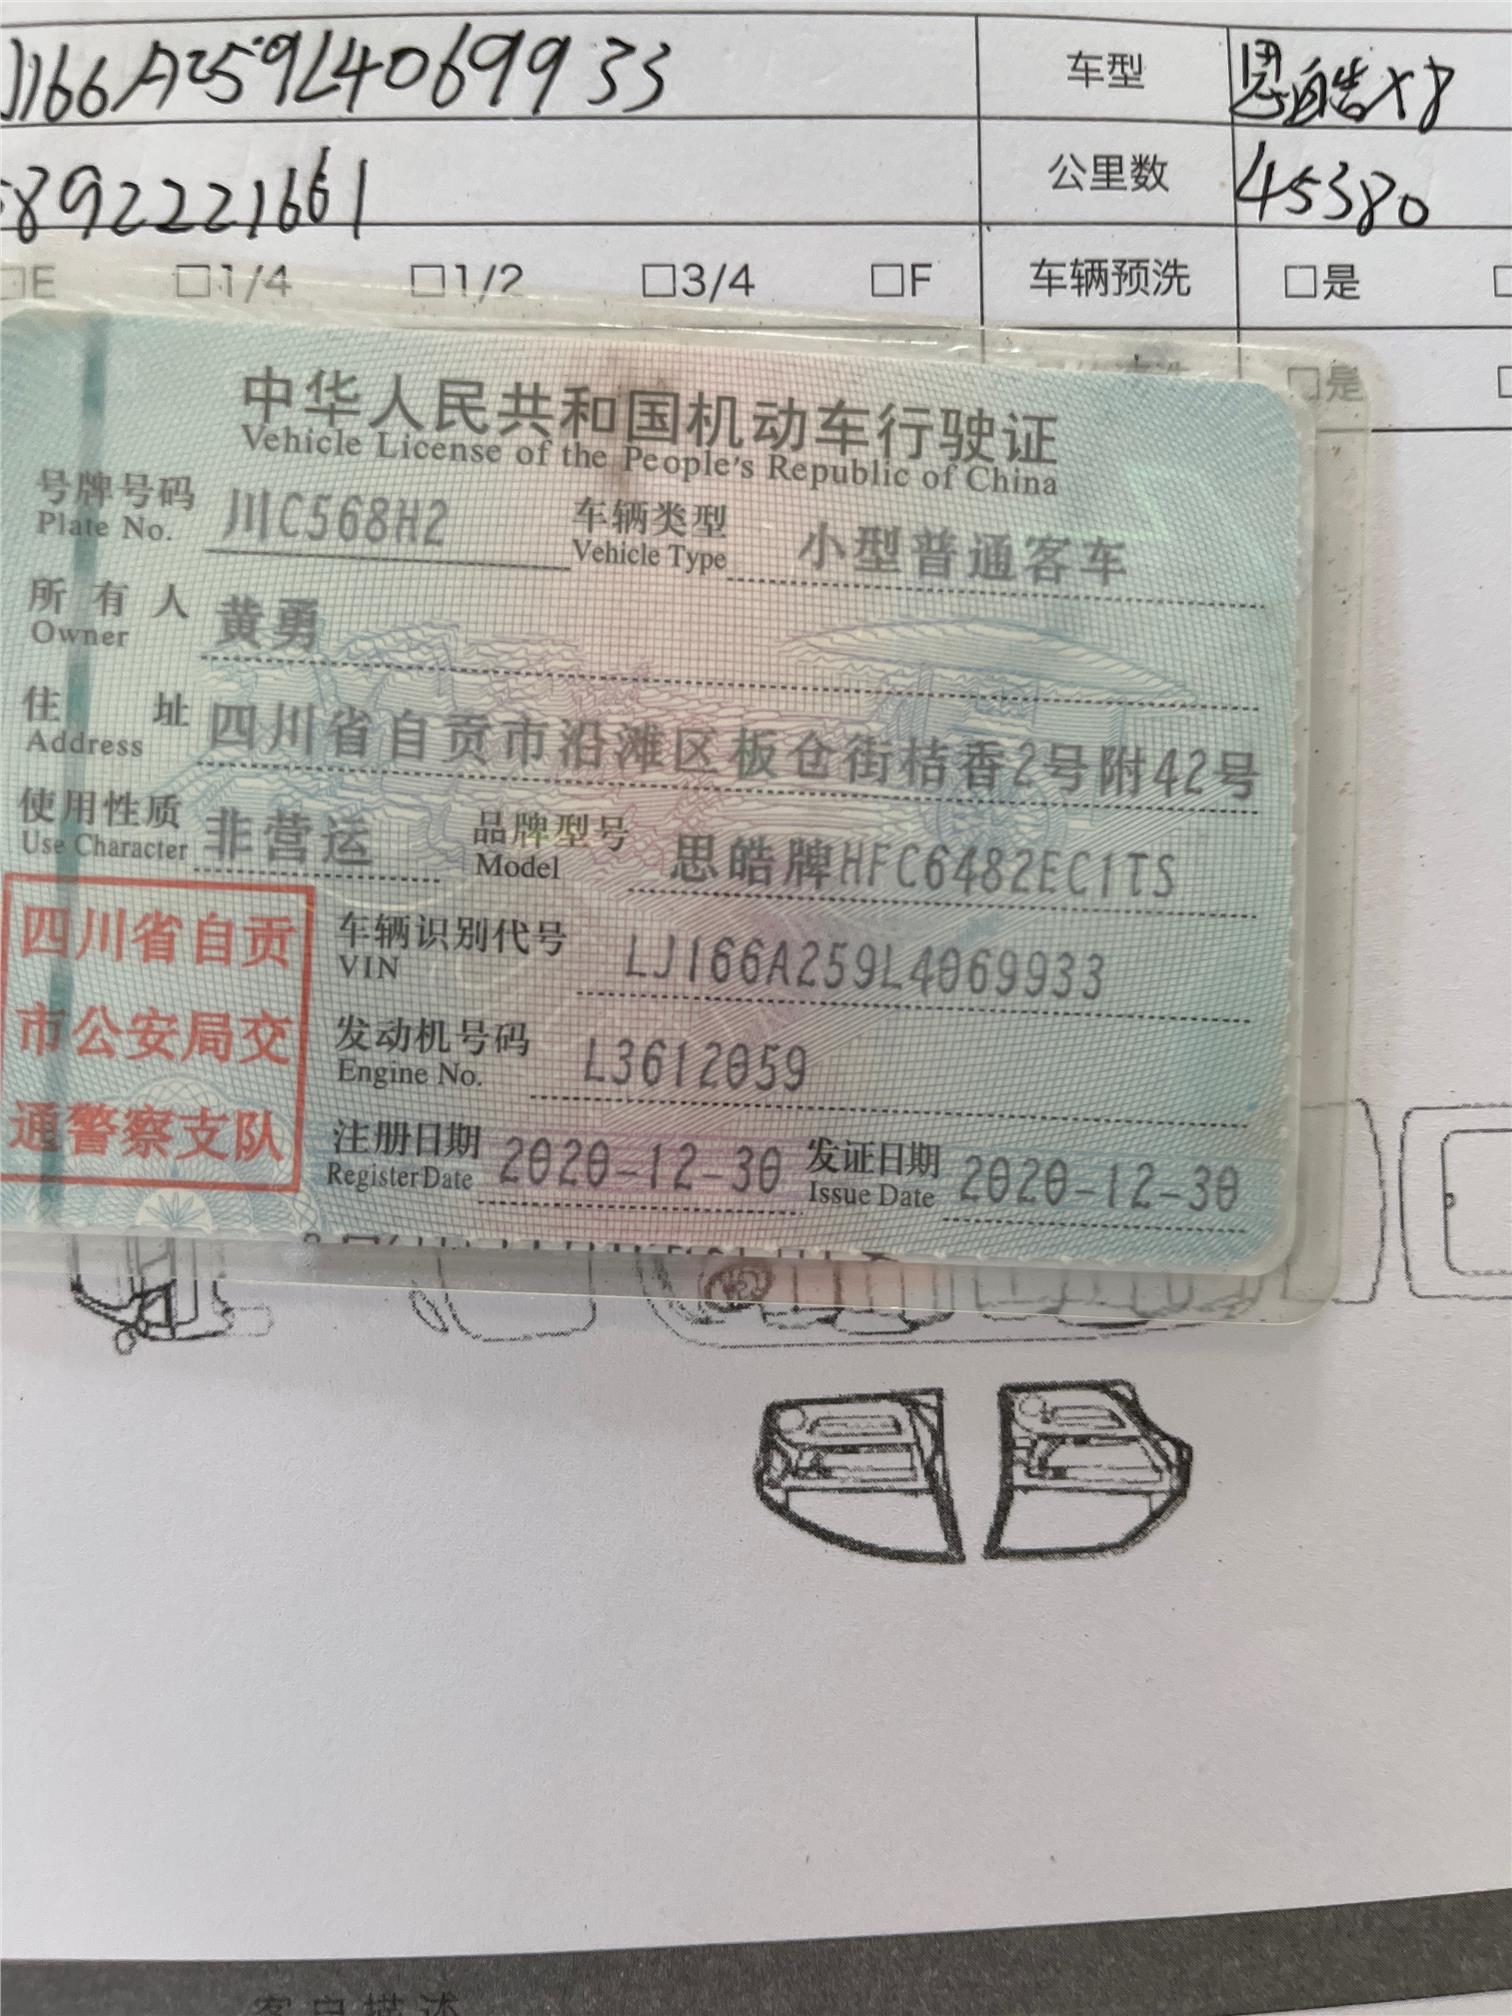 J166A259L4069933 车型 思皓X8
8922221661 公里数 45380
□E □1/4 □1/2 □3/4 □F 车辆预洗 □是
□是
中华人民共和国机动车行驶证
Vehicle License of the People's Republic of China
号牌号码 川C568H2 车辆类型 小型普通客车
Plate No. Vehicle Type
所有人 黄勇
Owner
住址 四川省自贡市沿滩区板仓街桔香2号附42号
Address
使用性质 非营运 品牌型号 思皓牌HFC6482EC1TS
Use Character Model
四川省自贡
市公安局交
通警察支队
车辆识别代号 LJ166A259L4069933
VIN
发动机号码 L3612059
Engine No.
注册日期 2020-12-30 发证日期 2020-12-30
Register Date Issue Date
客户描述